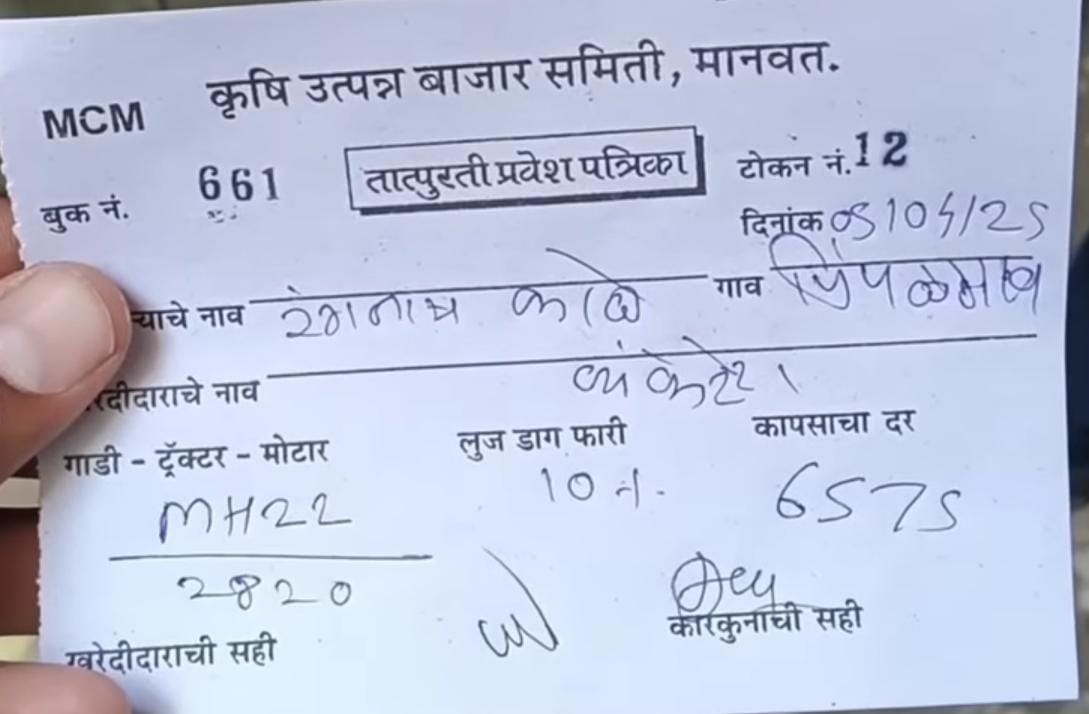 MCM कृषि उत्पन्न बाजार समिती, मानवत.
बुक नं. 661 तात्पुरती प्रवेश पत्रिका टोकन नं. 12
दिनांक 05/04/25
याचे नाव रंगनाथ काळे गाव
रदीदाराचे नाव व्यंकटेश
गाडी - ट्रॅक्टर - मोटार लुज डाग फारी कापसाचा दर
MH22 10 6575
2820
खरेदीदाराची सही कारकुनाची सही